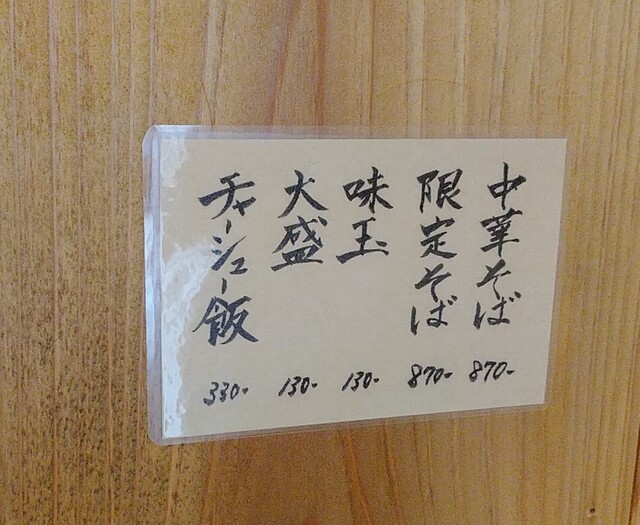 中華そば 870-
限定そば 870-
味玉 130-
大盛 130-
チャーシュー飯 330-